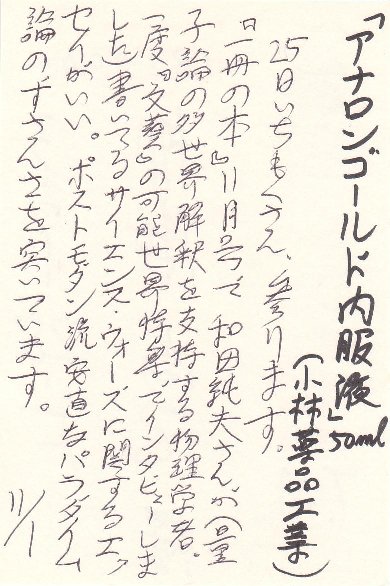 「アナロンゴールド内服液」50ml
(小林薬品工業)
25日いちもくさん、参ります。
『一冊の本』11月号で和田純夫さんが(量
子論の多世界解釈を支持する物理学者。
一度『文藝』の可能世界特集でインタビューしま
した)書いてるサイエンス・ウォーズに関するエッ
セイがいい。ポストモダン流安直なパラダイム
論のずさんさを突いています。
11/1